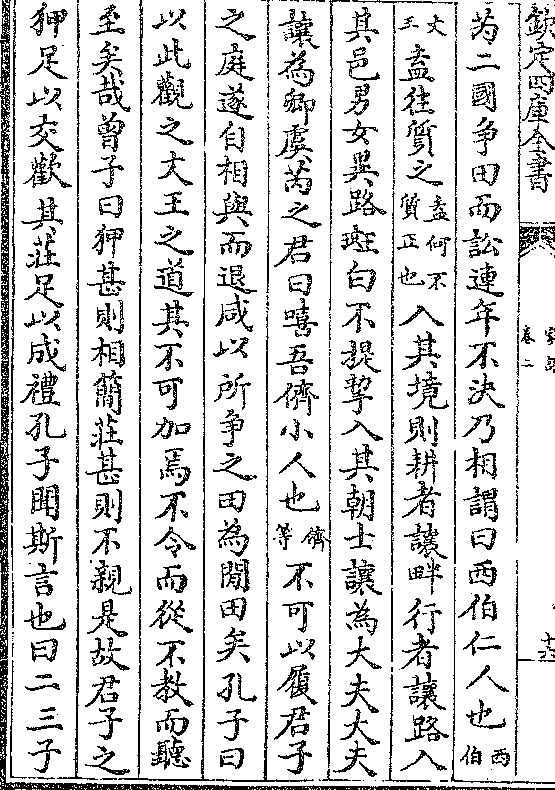 欽定四庫全書
家語
卷二
十六
芮二國争田而訟連年不決乃相謂曰西伯仁人也西伯
文王盍往質之盍何不質正也入其境則耕者讓畔行者讓路入
其邑男女異路斑白不提挈入其朝士讓為大夫大夫
讓為卿虞芮之君曰嘻吾儕小人也儕等不可以履君子
之庭遂自相與而退咸以所争之田為閒田矣孔子曰
以此觀之文王之道其不可加焉不令而從不教而聽
至矣哉曾子曰狎甚則相簡莊甚則不親是故君子之
狎足以交歡其莊足以成禮孔子聞斯言也曰二三子